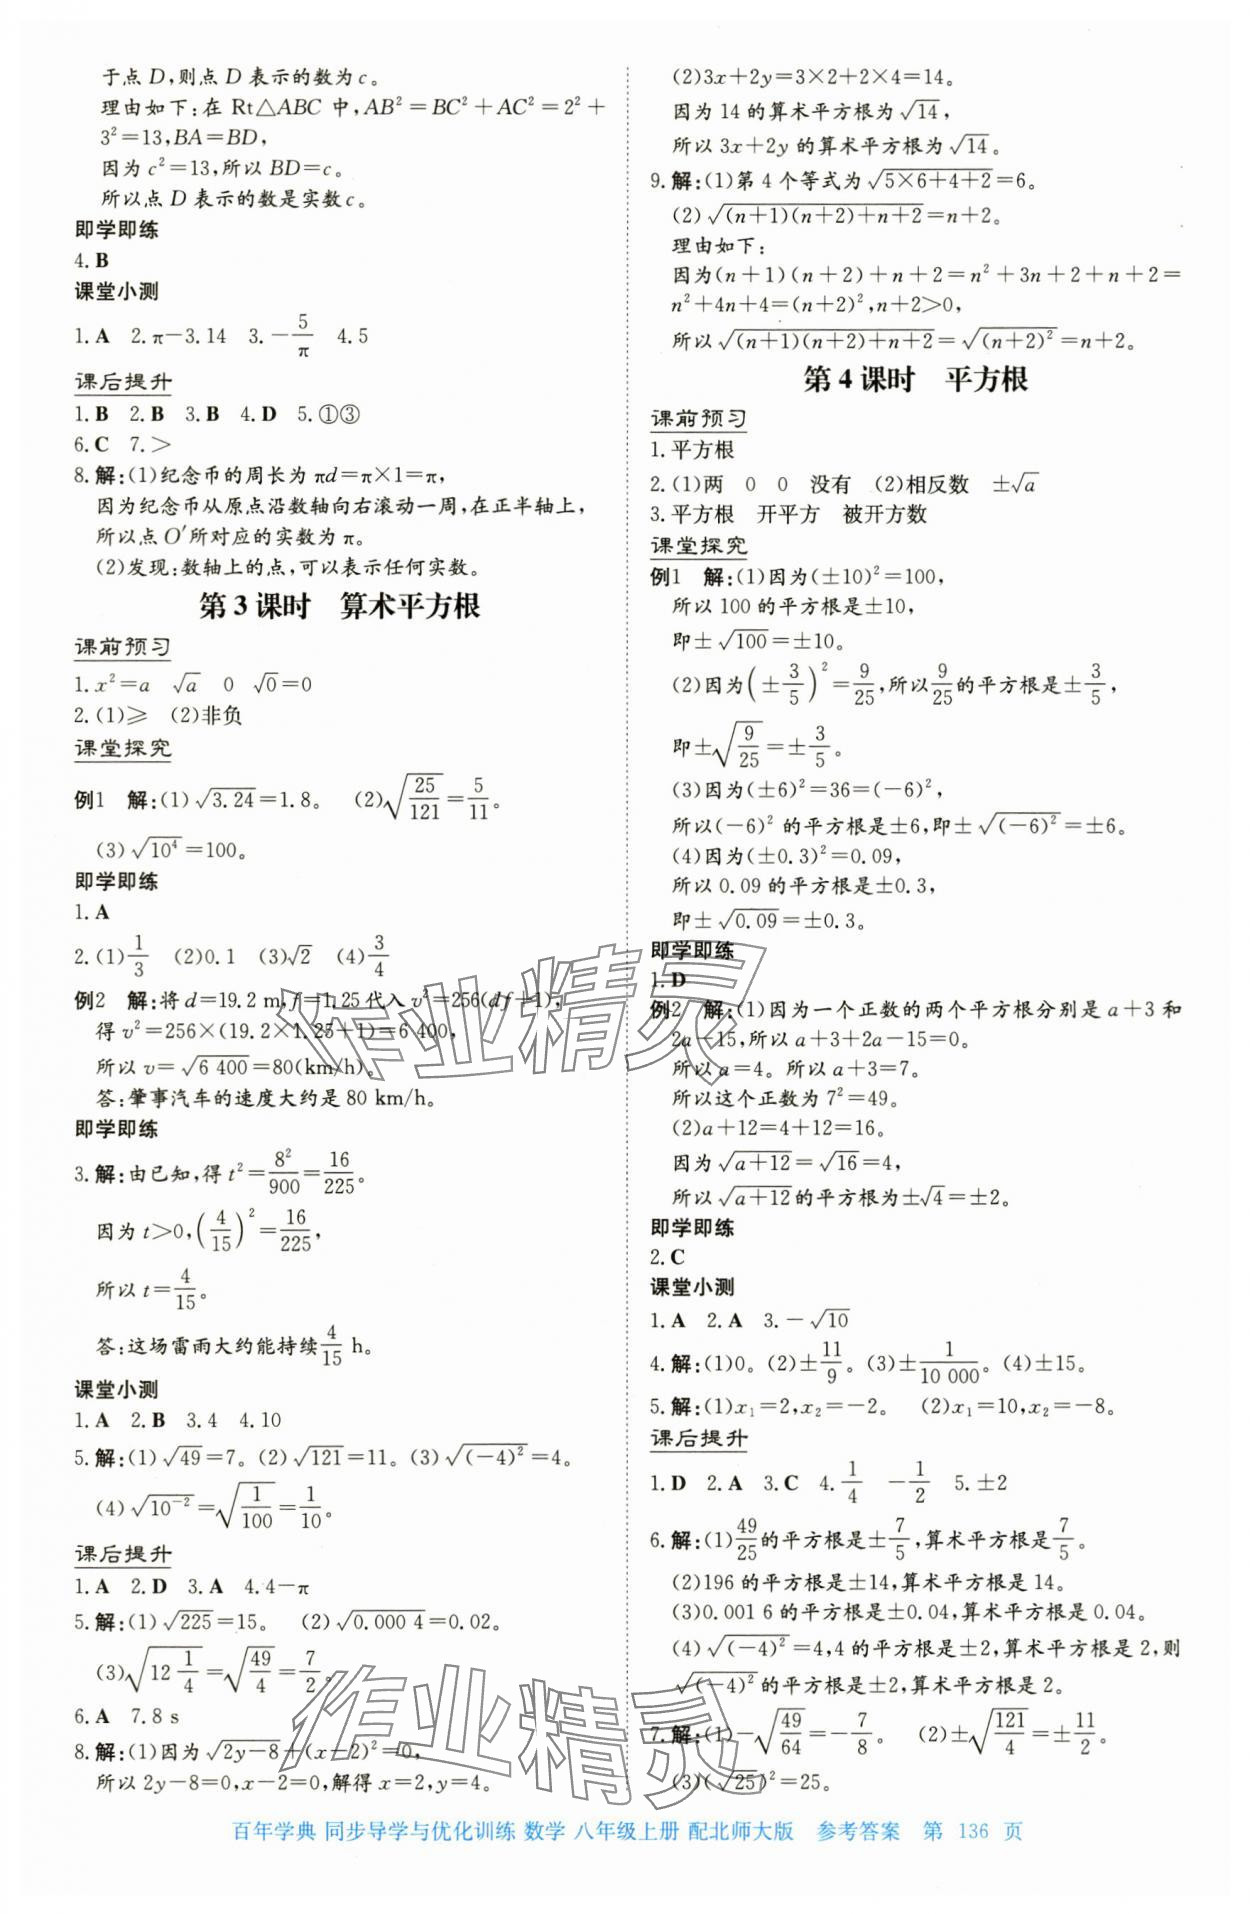 于点 D,则点 D 表示的数为 c。
理由如下:在 Rt△ABC 中,AB²=BC²+AC²=2²+
3²=13,BA=BD,
因为 c²=13,所以 BD=c。
所以点 D 表示的数是实数 c。
即学即练
4. B
课堂小测
1. A 2. π-3.14 3. -5/π 4. 5
课后提升
1. B 2. B 3. B 4. D 5. ①③
6. C 7. >
8. 解:(1)纪念币的周长为 πd=π×1=π,
因为纪念币从原点沿数轴向右滚动一周,在正半轴上,
所以点 O′所对应的实数为 π。
(2)发现:数轴上的点,可以表示任何实数。
第 3 课时 算术平方根
课前预习
1. x²=a √a 0 √0=0
2. (1)≥ (2)非负
课堂探究
例1 解:(1)√3.24=1.8。 (2)√(25/121)=5/11。
(3)√10⁴=100。
即学即练
1. A
2. (1)1/3 (2)0.1 (3)√2 (4)3/4
例2 解:将 d=19.2 m,f=1.25代入 v²=256(df+1),
得 v²=256×(19.2×1.25+1)=6 400,
所以 v=√6 400=80(km/h)。
答:肇事汽车的速度大约是 80 km/h。
即学即练
3. 解:由已知,得 t²=8²/900=16/225。
因为 t>0,(4/15)²=16/225,
所以 t=4/15。
答:这场雷雨大约能持续4/15 h。
课堂小测
1. A 2. B 3. 4 4. 10
5. 解:(1)√49=7。(2)√121=11。(3)√(-4)²=4。
(4)√10⁻²=√(1/100)=1/10。
课后提升
1. A 2. D 3. A 4. 4-π
5. 解:(1)√225=15。 (2)√0.000 4=0.02。
(3)√(12 1/4)=√(49/4)=7/2。
6. A 7. 8 s
8. 解:(1)因为√2y-8+(x-2)²=0,
所以 2y-8=0,x-2=0,解得 x=2,y=4。
(2)3x+2y=3×2+2×4=14。
因为 14 的算术平方根为√14,
所以 3x+2y 的算术平方根为√14。
9. 解:(1)第 4 个等式为√(5×6+4+2)=6。
(2)√((n+1)(n+2)+n+2)=n+2。
理由如下:
因为(n+1)(n+2)+n+2=n²+3n+2+n+2=
n²+4n+4=(n+2)²,n+2>0,
所以√((n+1)(n+2)+n+2)=√(n+2)²=n+2。
第 4 课时 平方根
课前预习
1. 平方根
2. (1)两 0 0 没有 (2)相反数 ±√a
3. 平方根 开平方 被开方数
课堂探究
例1 解:(1)因为(±10)²=100,
所以 100 的平方根是±10,
即±√100=±10。
(2)因为(±3/5)²=9/25,所以9/25的平方根是±3/5,
即±√(9/25)=±3/5。
(3)因为(±6)²=36=(-6)²,
所以(-6)² 的平方根是±6,即±√(-6)²=±6。
(4)因为(±0.3)²=0.09,
所以 0.09 的平方根是±0.3,
即±√0.09=±0.3。
即学即练
1. D
例2 解:(1)因为一个正数的两个平方根分别是 a+3 和
2a-15,所以 a+3+2a-15=0。
所以 a=4。所以 a+3=7。
所以这个正数为 7²=49。
(2)a+12=4+12=16。
因为√(a+12)=√16=4,
所以√(a+12)的平方根为±√4=±2。
即学即练
2. C
课堂小测
1. A 2. A 3. -√10
4. 解:(1)0。(2)±11/9。(3)±1/10 000。(4)±15。
5. 解:(1)x₁=2,x₂=-2。 (2)x₁=10,x₂=-8。
课后提升
1. D 2. A 3. C 4. 1/4 -1/2 5. ±2
6. 解:(1)49/25的平方根是±7/5,算术平方根是7/5。
(2)196 的平方根是±14,算术平方根是 14。
(3)0.001 6 的平方根是±0.04,算术平方根是 0.04。
(4)√(-4)²=4,4 的平方根是±2,算术平方根是 2,则
√(-4)²的平方根是±2,算术平方根是 2。
7. 解:(1)-√(49/64)=-7/8。 (2)±√(121/4)=±11/2。
(3)(√25)²=25。
作业精灵
作业精灵
百年学典 同步导学与优化训练 数学 八年级上册 配北师大版 参考答案 第 136 页